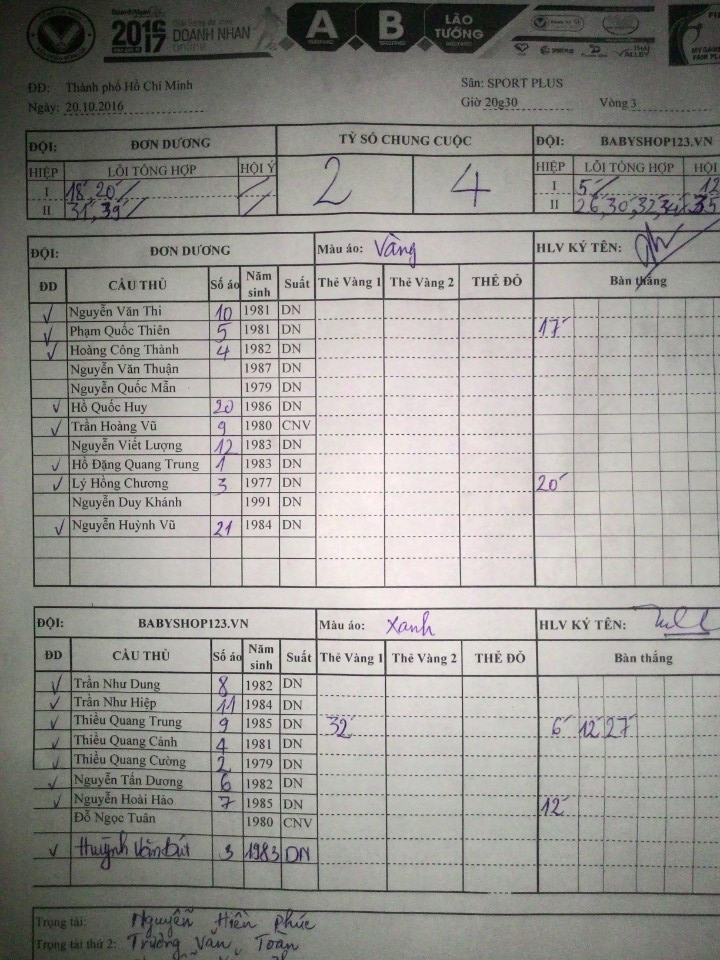 2016 2017 DOANH NHAN online
A B LÃO TƯỚNG
ĐĐ: Thành phố Hồ Chí Minh Sân: SPORT PLUS
Ngày: 20.10.2016 Giờ 20g30 Vòng 3
ĐỘI: ĐƠN DƯƠNG TỶ SỐ CHUNG CUỘC ĐỘI: BABYSHOP123.VN
HIỆP LỖI TỔNG HỢP HỘI Ý 2 4 HIỆP LỖI TỔNG HỢP HỘI
I 18' 20' I 5' 12
II 31', 39' II 26, 30, 32, 34, 35
ĐỘI: ĐƠN DƯƠNG Màu áo: Vàng HLV KÝ TÊN:
ĐD CẦU THỦ Số áo Năm sinh Suất Thẻ Vàng 1 Thẻ Vàng 2 THẺ ĐỎ Bàn thắng
✓ Nguyễn Văn Thi 10 1981 DN
✓ Phạm Quốc Thiên 5 1981 DN 17'
✓ Hoàng Công Thành 4 1982 DN
Nguyễn Văn Thuận 1987 DN
Nguyễn Quốc Mẫn 1979 DN
✓ Hồ Quốc Huy 20 1986 DN
✓ Trần Hoàng Vũ 9 1980 CNV
Nguyễn Viết Lượng 12 1983 DN
✓ Hồ Đặng Quang Trung 1 1983 DN
✓ Lý Hồng Chương 3 1977 DN 20'
Nguyễn Duy Khánh 1991 DN
✓ Nguyễn Huỳnh Vũ 21 1984 DN
ĐỘI: BABYSHOP123.VN Màu áo: Xanh HLV KÝ TÊN:
ĐD CẦU THỦ Số áo Năm sinh Suất Thẻ Vàng 1 Thẻ Vàng 2 THẺ ĐỎ Bàn thắng
✓ Trần Như Dung 8 1982 DN
✓ Trần Như Hiệp 11 1984 DN
✓ Thiều Quang Trung 9 1985 DN 32' 6' 12' 27'
✓ Thiều Quang Cảnh 4 1981 DN
✓ Thiều Quang Cường 2 1979 DN
✓ Nguyễn Tấn Dương 6 1982 DN
✓ Nguyễn Hoài Hảo 7 1985 DN 12'
Đỗ Ngọc Tuân 1980 CNV
✓ Huỳnh Văn Bút 3 1983 DN
Trọng tài: Nguyễn Hiền Phúc
Trọng tài thứ 2: Trương Văn Toàn